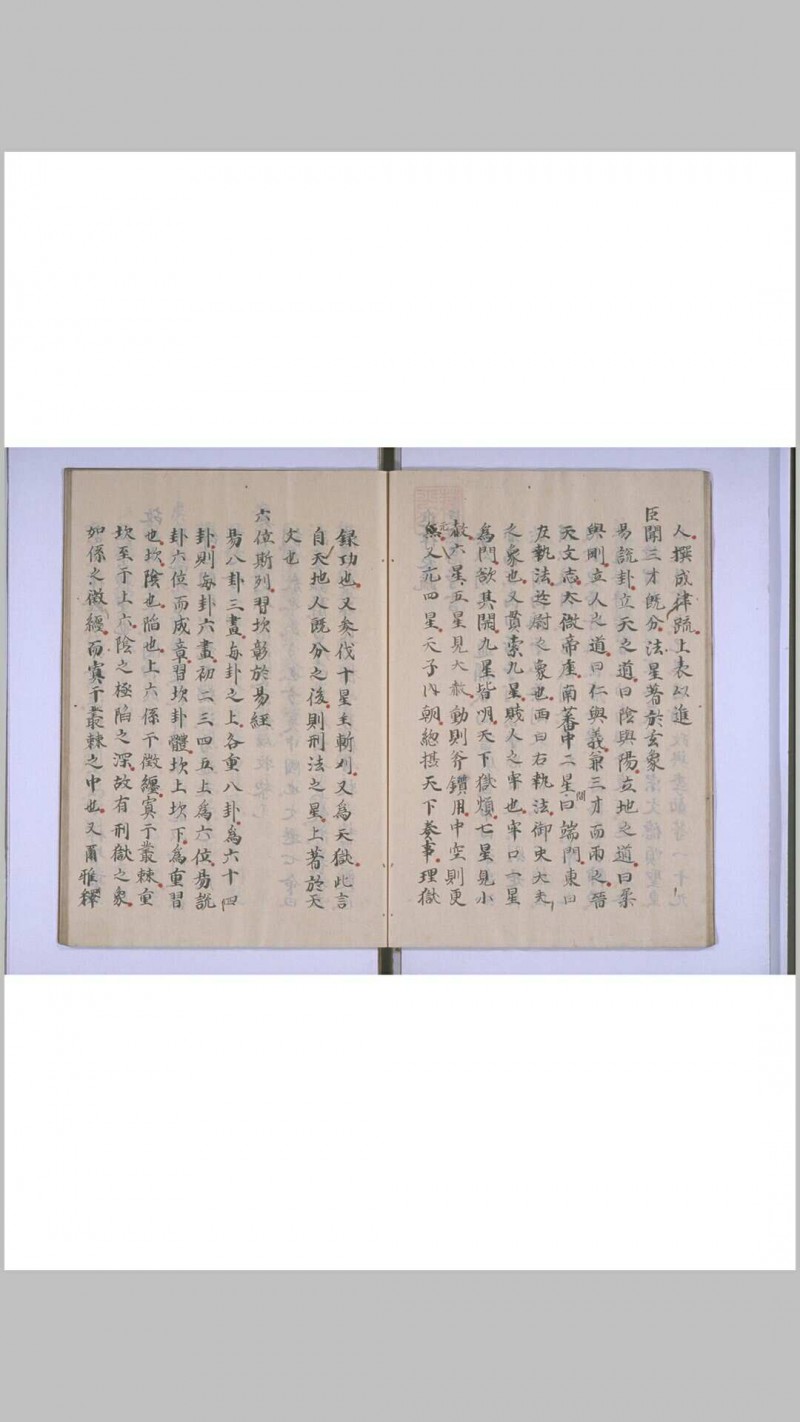 人撰成律疏上表以進
臣聞三才既分法星著於玄象
易説卦立天之道曰陰與陽立地之道曰柔
與剛立人之道曰仁與義兼三才而兩之晉
天文志太微帝座南蕃中二星間曰端門東曰
左執法廷尉之象也西曰右執法御史大夫
之象也又貫索九星賤人之牢也牢口一星
爲門欲其開九星皆明天下獄煩七星見小
赦六星五星見大赦動則斧鑕用中空則更
元又亢四星天子内朝総摂天下奏事理獄
録功也又矣伐十星主斬刈又為天獄此言
自天地人既分之後則刑法之星上著於天
文也
六位斯列習坎彰於易経
易八卦三畫每卦之上各重八卦為六十四
卦則每卦六畫初二三四五上為六位易説
卦六位而成章習坎卦體坎上坎下為重習
也坎陰也陥也上六係于徽纆寘于叢棘重
坎至于上六陰之極陥之深故有刑獄之象
如係之徽纆而寘于叢棘之中也又爾雅釋